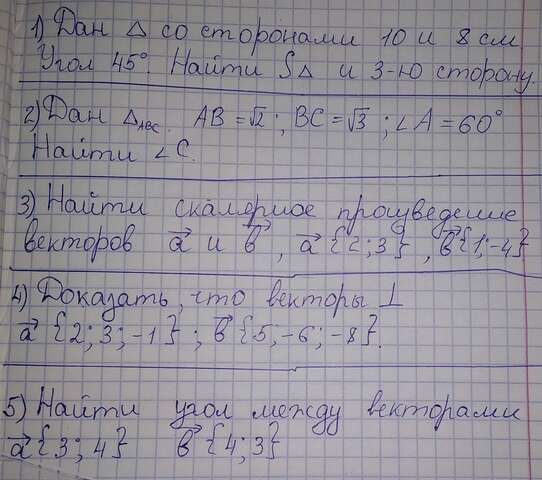 1) Дан △ со сторонами 10 и 8 см.
Угол 45°. Найти S△ и 3-ю сторону.
2) Дан △ABC. AB = √2 ; BC = √3 ; ∠A = 60°
Найти ∠C.
3) Найти скалярное произведение
векторов a⃗ и b⃗ , a⃗ {2; 3} , b⃗ {1; -4}
4) Доказать, что векторы ⊥
a⃗ {2; 3; -1} ; b⃗ {5; -6; -8}.
5) Найти угол между векторами
a⃗ {3; 4} b⃗ {4; 3}